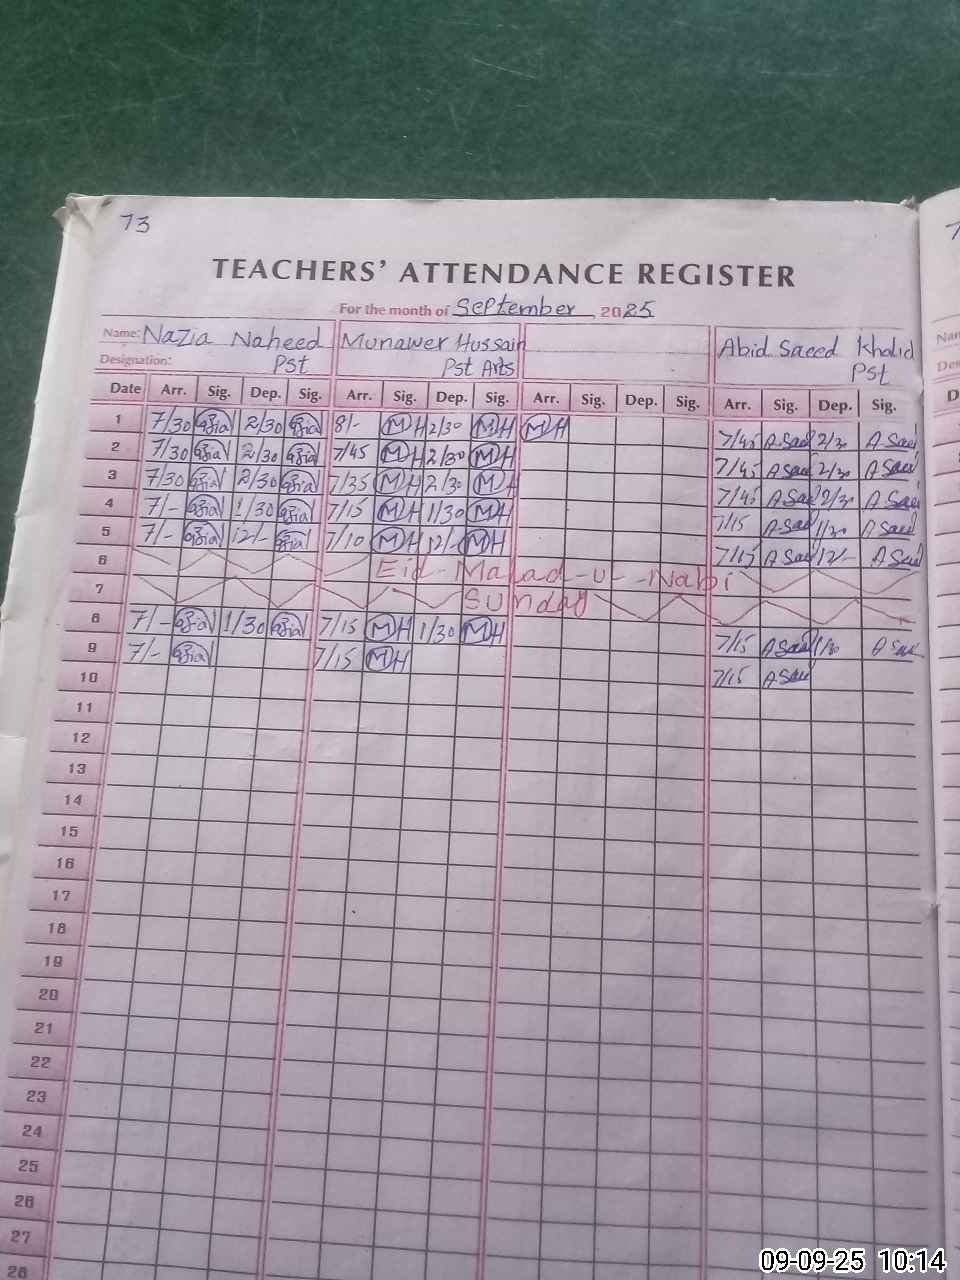 73
7
TEACHERS' ATTENDANCE REGISTER
For the month of September 2025
Name: Nazia Naheed Munawer Hussain Abid Saeed Khalid
Designation: Pst Pst Arts Pst
Date Arr. Sig. Dep. Sig. Arr. Sig. Dep. Sig. Arr. Sig. Dep. Sig. Arr. Sig. Dep. Sig.
1 7/30 2/30 8/- MH 2/30 MH MH 7/45 A Saed 2/30 A Saed
2 7/30 2/30 7/45 MH 2/30 MH 7/45 A Saed 2/30 A Saed
3 7/30 2/30 7/35 MH 2/30 MH 7/45 A Saed 2/30 A Saed
4 7/- 1/30 7/15 MH 1/30 MH 7/15 A Saed 1/30 A Saed
5 7/- 12/- 7/10 MH 12/- MH 7/15 A Saed 12/- A Saed
6 Eid-Malad-u-Nabi
7 Sunday
8 7/- 1/30 7/15 MH 1/30 MH 7/15 A Saed 1/30 A Saed
9 7/- 7/15 MH 7/15 A Saed
10
11
12
13
14
15
16
17
18
19
20
21
22
23
24
25
26
27
28
09-09-25 10:14